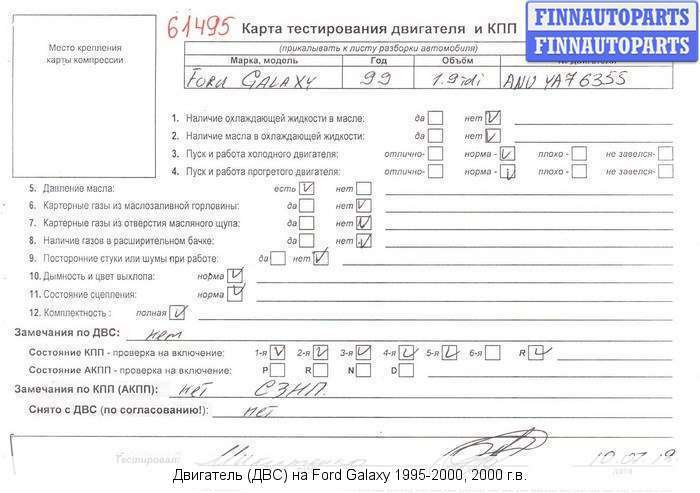 61495 Карта тестирования двигателя и КПП
FINNAUTOPARTS
FINNAUTOPARTS
(прикалывать к листу разборки автомобиля)
Место крепления
карты компрессии
Марка, модель Год Объём
Ford GALAXY 99 1.9 tdi ANU YA76355
1. Наличие охлаждающей жидкости в масле: да нет
2. Наличие масла в охлаждающей жидкости: да нет
3. Пуск и работа холодного двигателя: отлично- норма - плохо - не завелся-
4. Пуск и работа прогретого двигателя: отлично- норма - плохо - не завелся-
5. Давление масла: есть нет
6. Картерные газы из маслозаливной горловины: да нет
7. Картерные газы из отверстия масляного щупа: да нет
8. Наличие газов в расширительном бачке: да нет
9. Посторонние стуки или шумы при работе: да нет
10. Дымность и цвет выхлопа: норма
11. Состояние сцепления: норма
12. Комплектность : полная
Замечания по ДВС: нет
Состояние КПП - проверка на включение: 1-я 2-я 3-я 4-я 5-я 6-я R
Состояние АКПП - проверка на включение: P R N D
Замечания по КПП (АКПП): нет СЗНП
Снято с ДВС (по согласованию!): нет
Тестировал:
дата
Двигатель (ДВС) на Ford Galaxy 1995-2000, 2000 г.в.